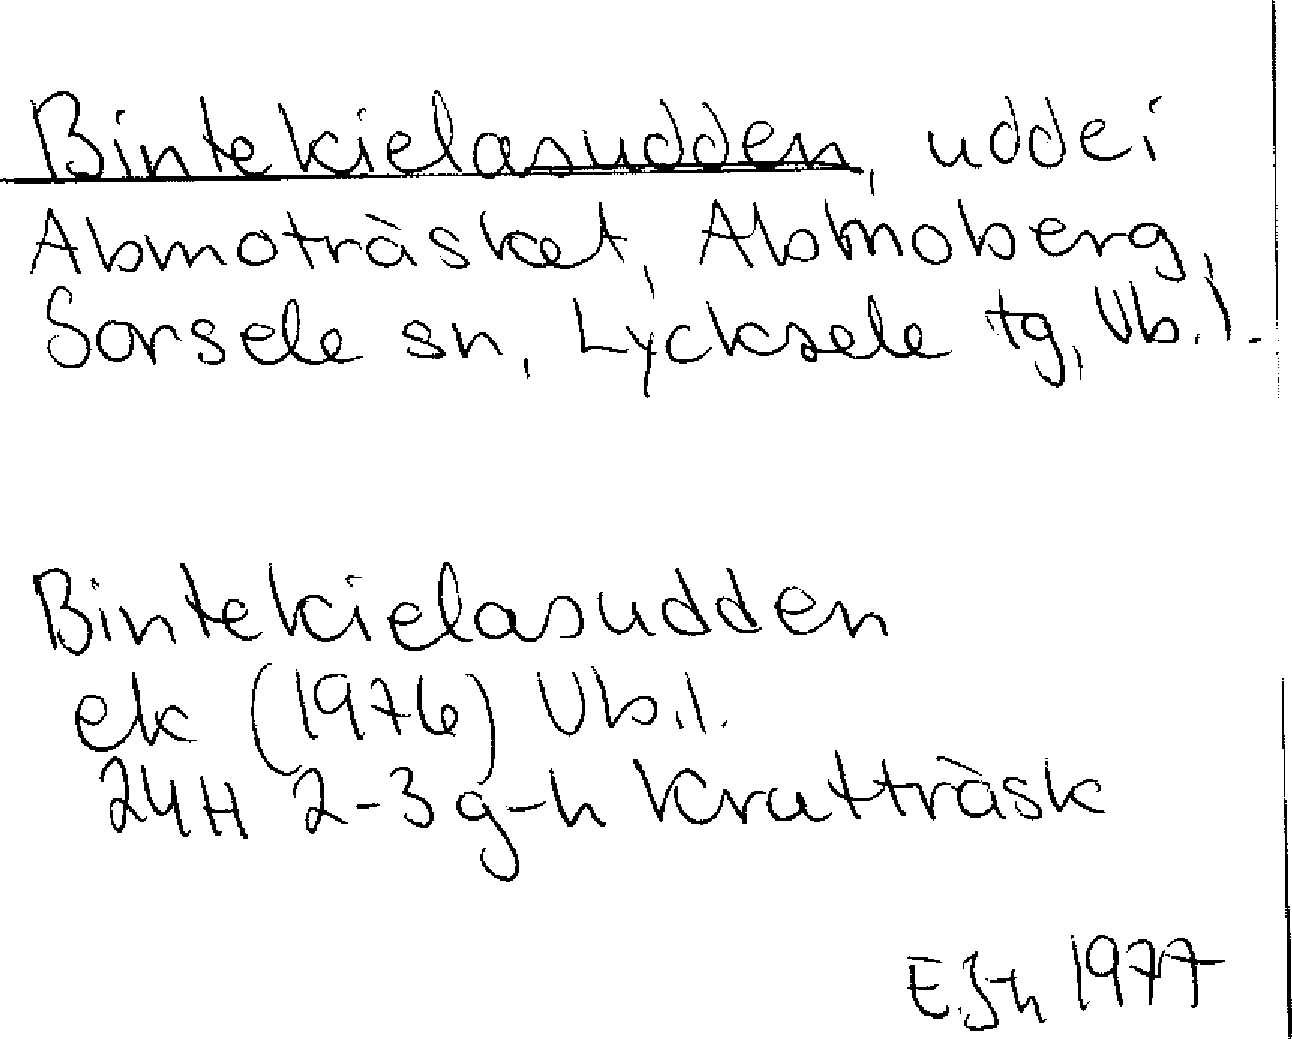 Bintekielasudden, udde i
Abmoträsket, Abmoberg,
Sorsele sn, Lycksele tg, Vb.l.
Bintekielasudden
ek (1976) Vb.l.
24H 2-3 g-h Kratträsk
1977